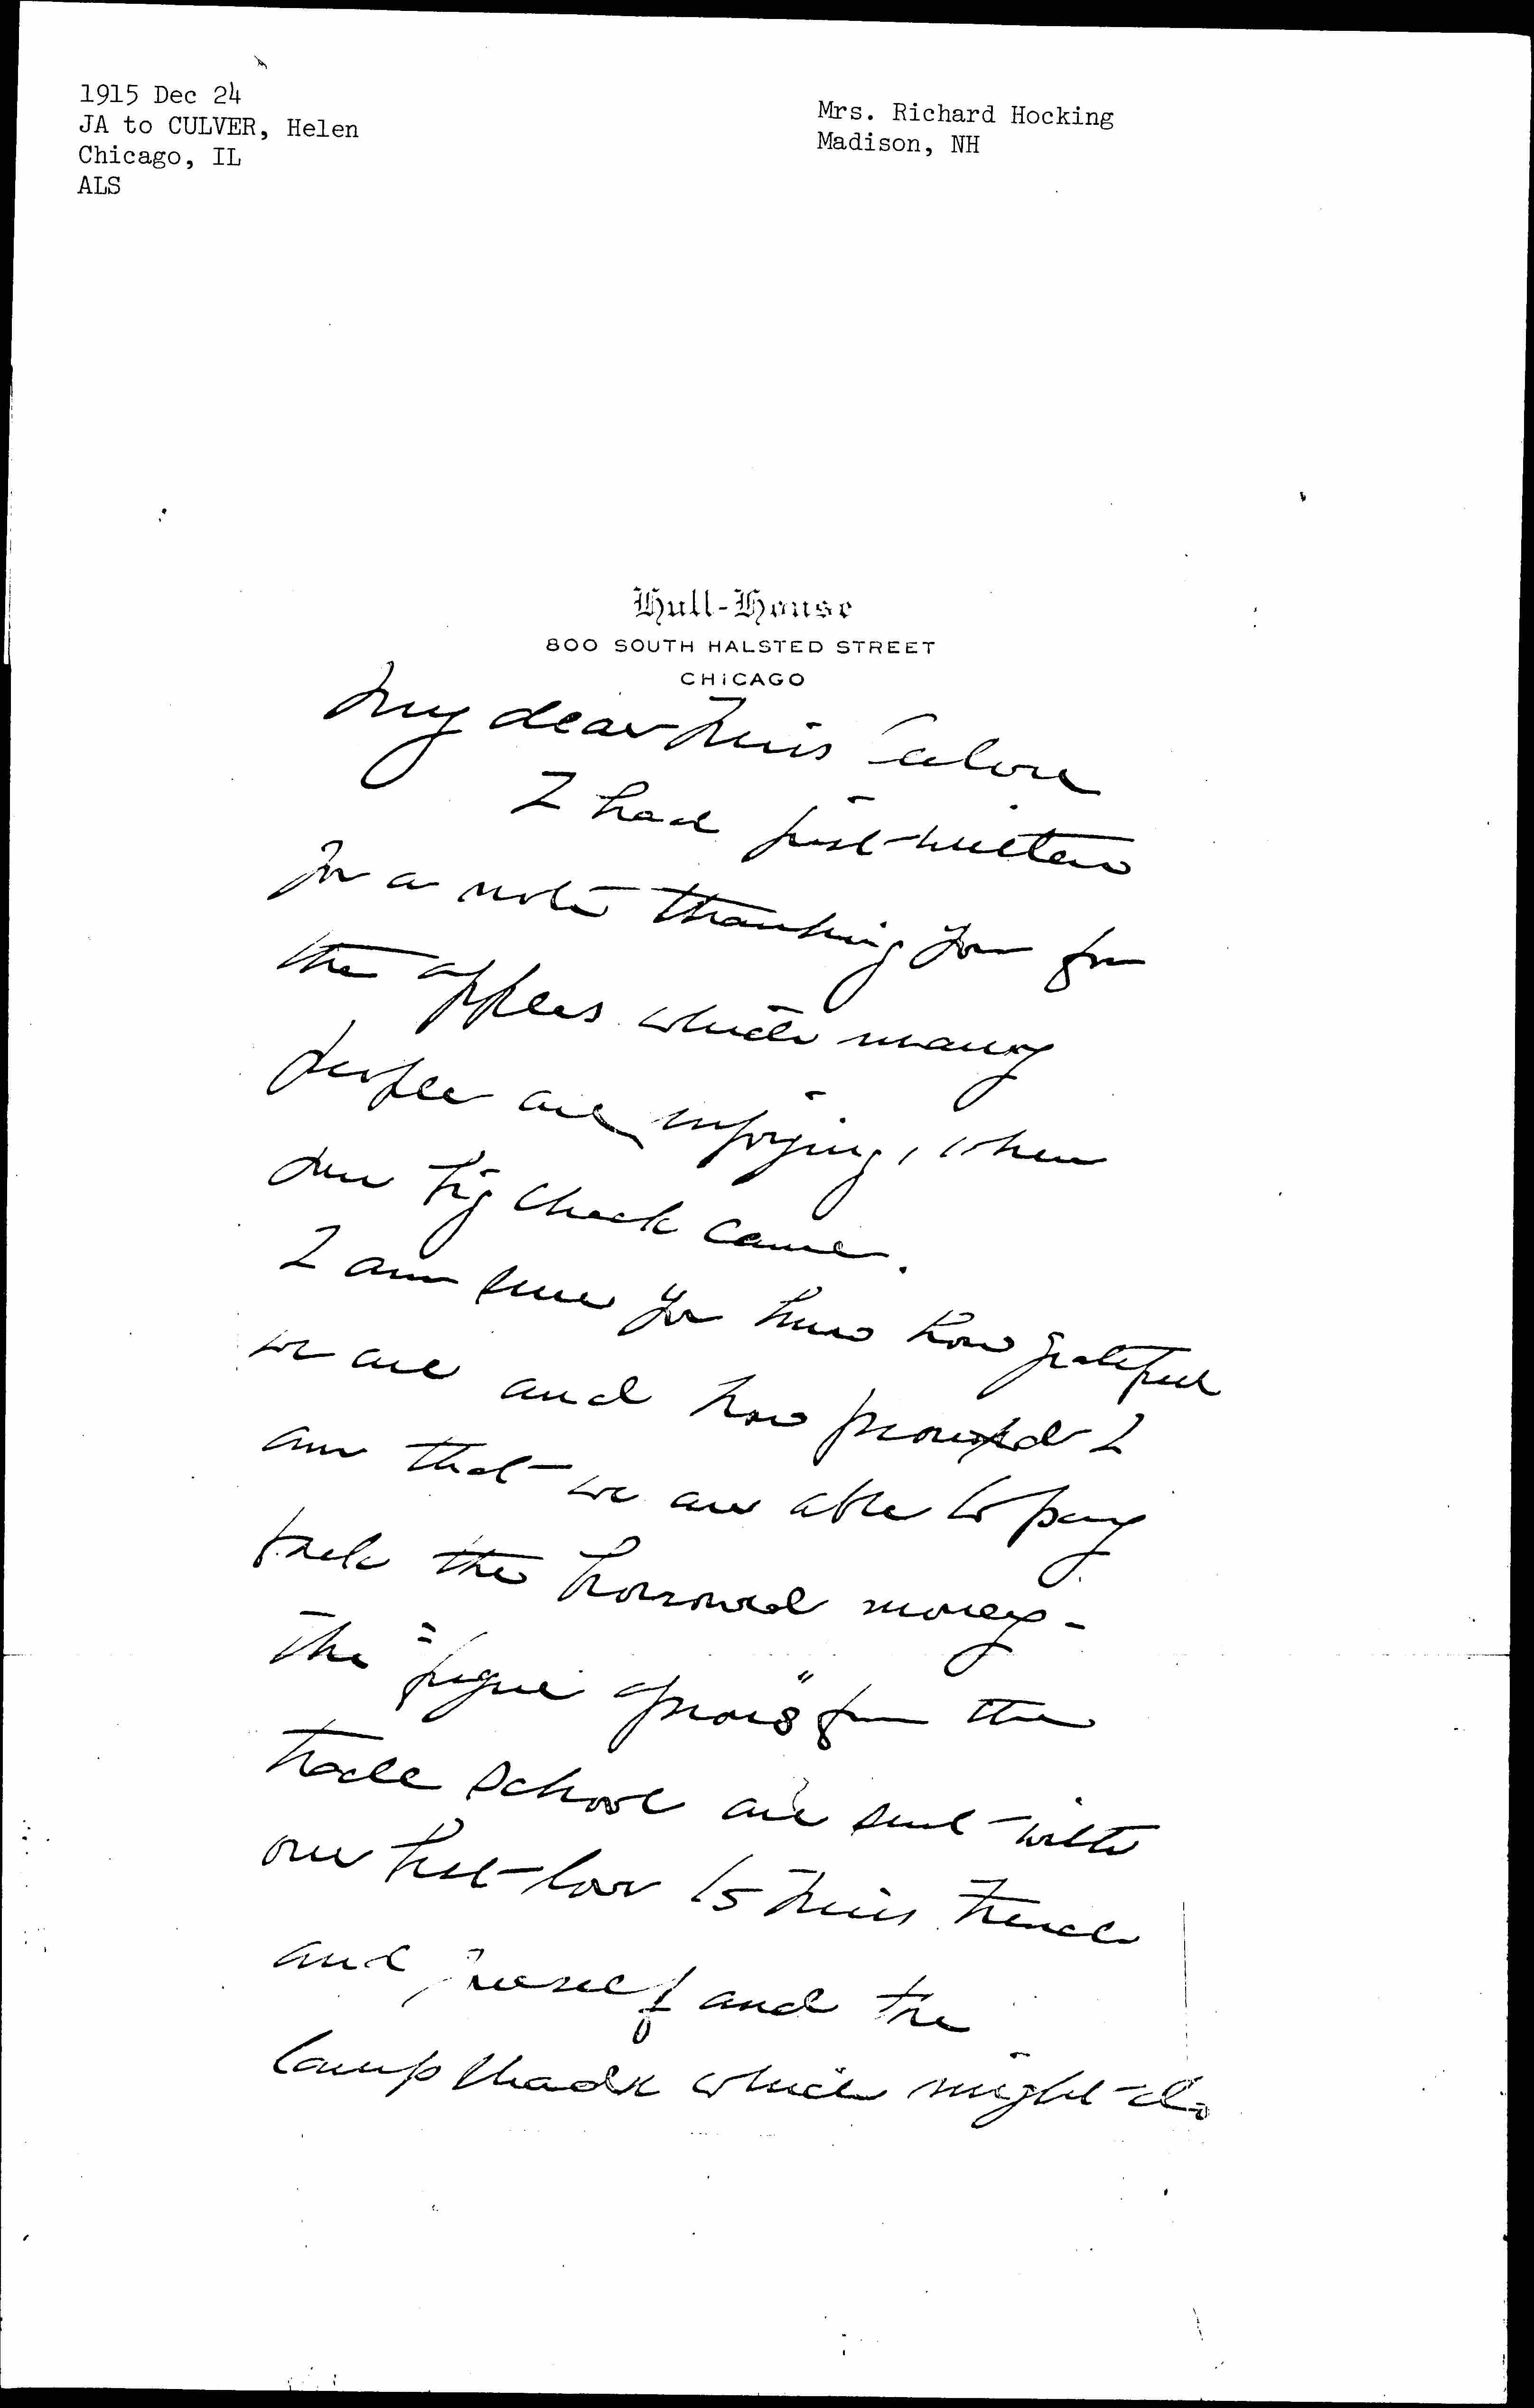 1915 Dec 24
JA to CULVER, Helen
Chicago, IL
ALS
Mrs. Richard Hocking
Madison, NH
Hull-House
800 SOUTH HALSTED STREET
CHICAGO
My dear Miss Culver
I had just written
you a note thanking you for
the apples which many
people are enjoying, when
your big check came.
I am sure you know how grateful
we are and how proud I
am that we are able to pay
back the borrowed money -
The "figure aprons" from the
trade school are sent with
our best love to Miss French
and yourself and the
lamp shade which might do